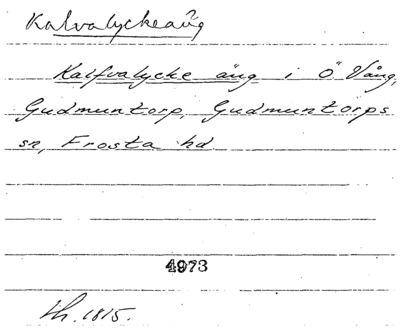 Kalvalyckeäng
Kalfvalycke äng i Ö Vång,
Gudmuntorp, Gudmuntorps
sn, Frosta hd
4973
Lh. 1815.